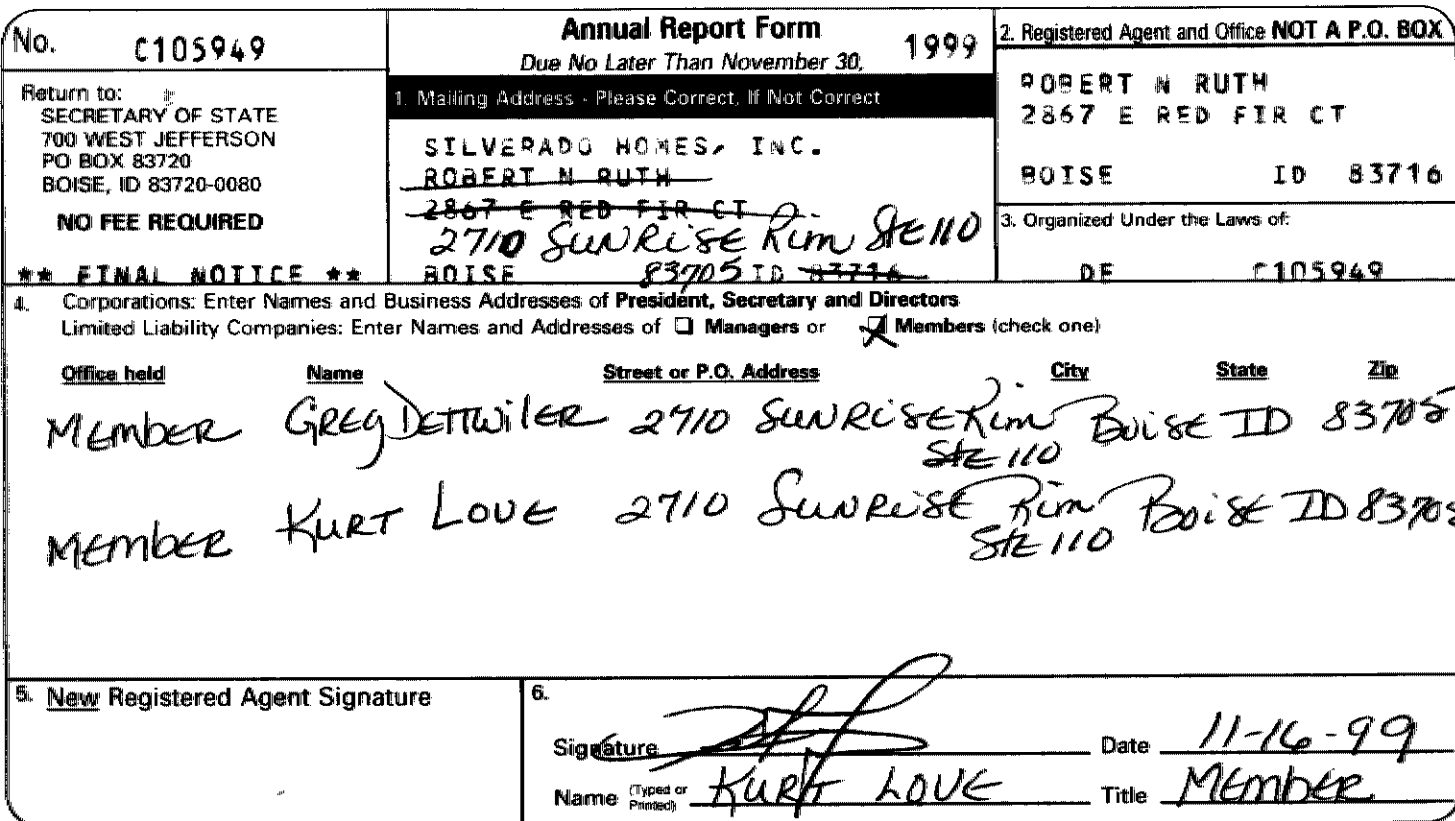 No. C105949
Return to:
SECRETARY OF STATE
700 WEST JEFFERSON
PO BOX 83720
BOISE, ID 83720-0080
NO FEE REQUIRED
** FINAL NOTICE **
Annual Report Form
1999
Due No Later Than November 30,
1. Mailing Address - Please Correct, If Not Correct
SILVERADO HOMES, INC.
ROBERT N RUTH
2867 E RED FIR CT
2710 SUNRISE Rim STE 110
BOISE 83705 ID 83716
2. Registered Agent and Office NOT A P.O. BOX
ROBERT N RUTH
2867 E RED FIR CT
BOISE ID 83716
3. Organized Under the Laws of:
DE C105949
4. Corporations: Enter Names and Business Addresses of President, Secretary and Directors
Limited Liability Companies: Enter Names and Addresses of Managers or Members (check one)
Office held Name Street or P.O. Address City State Zip
MEMBER GREG DETTWILER 2710 SUNRISE Rim BOISE ID 83705
STE 110
MEMBER KURT LOVE 2710 SUNRISE Rim BOISE ID 83705
STE 110
5. New Registered Agent Signature
6.
Signature Date 11-16-99
Name (Typed or Printed) KURT LOVE Title MEMBER